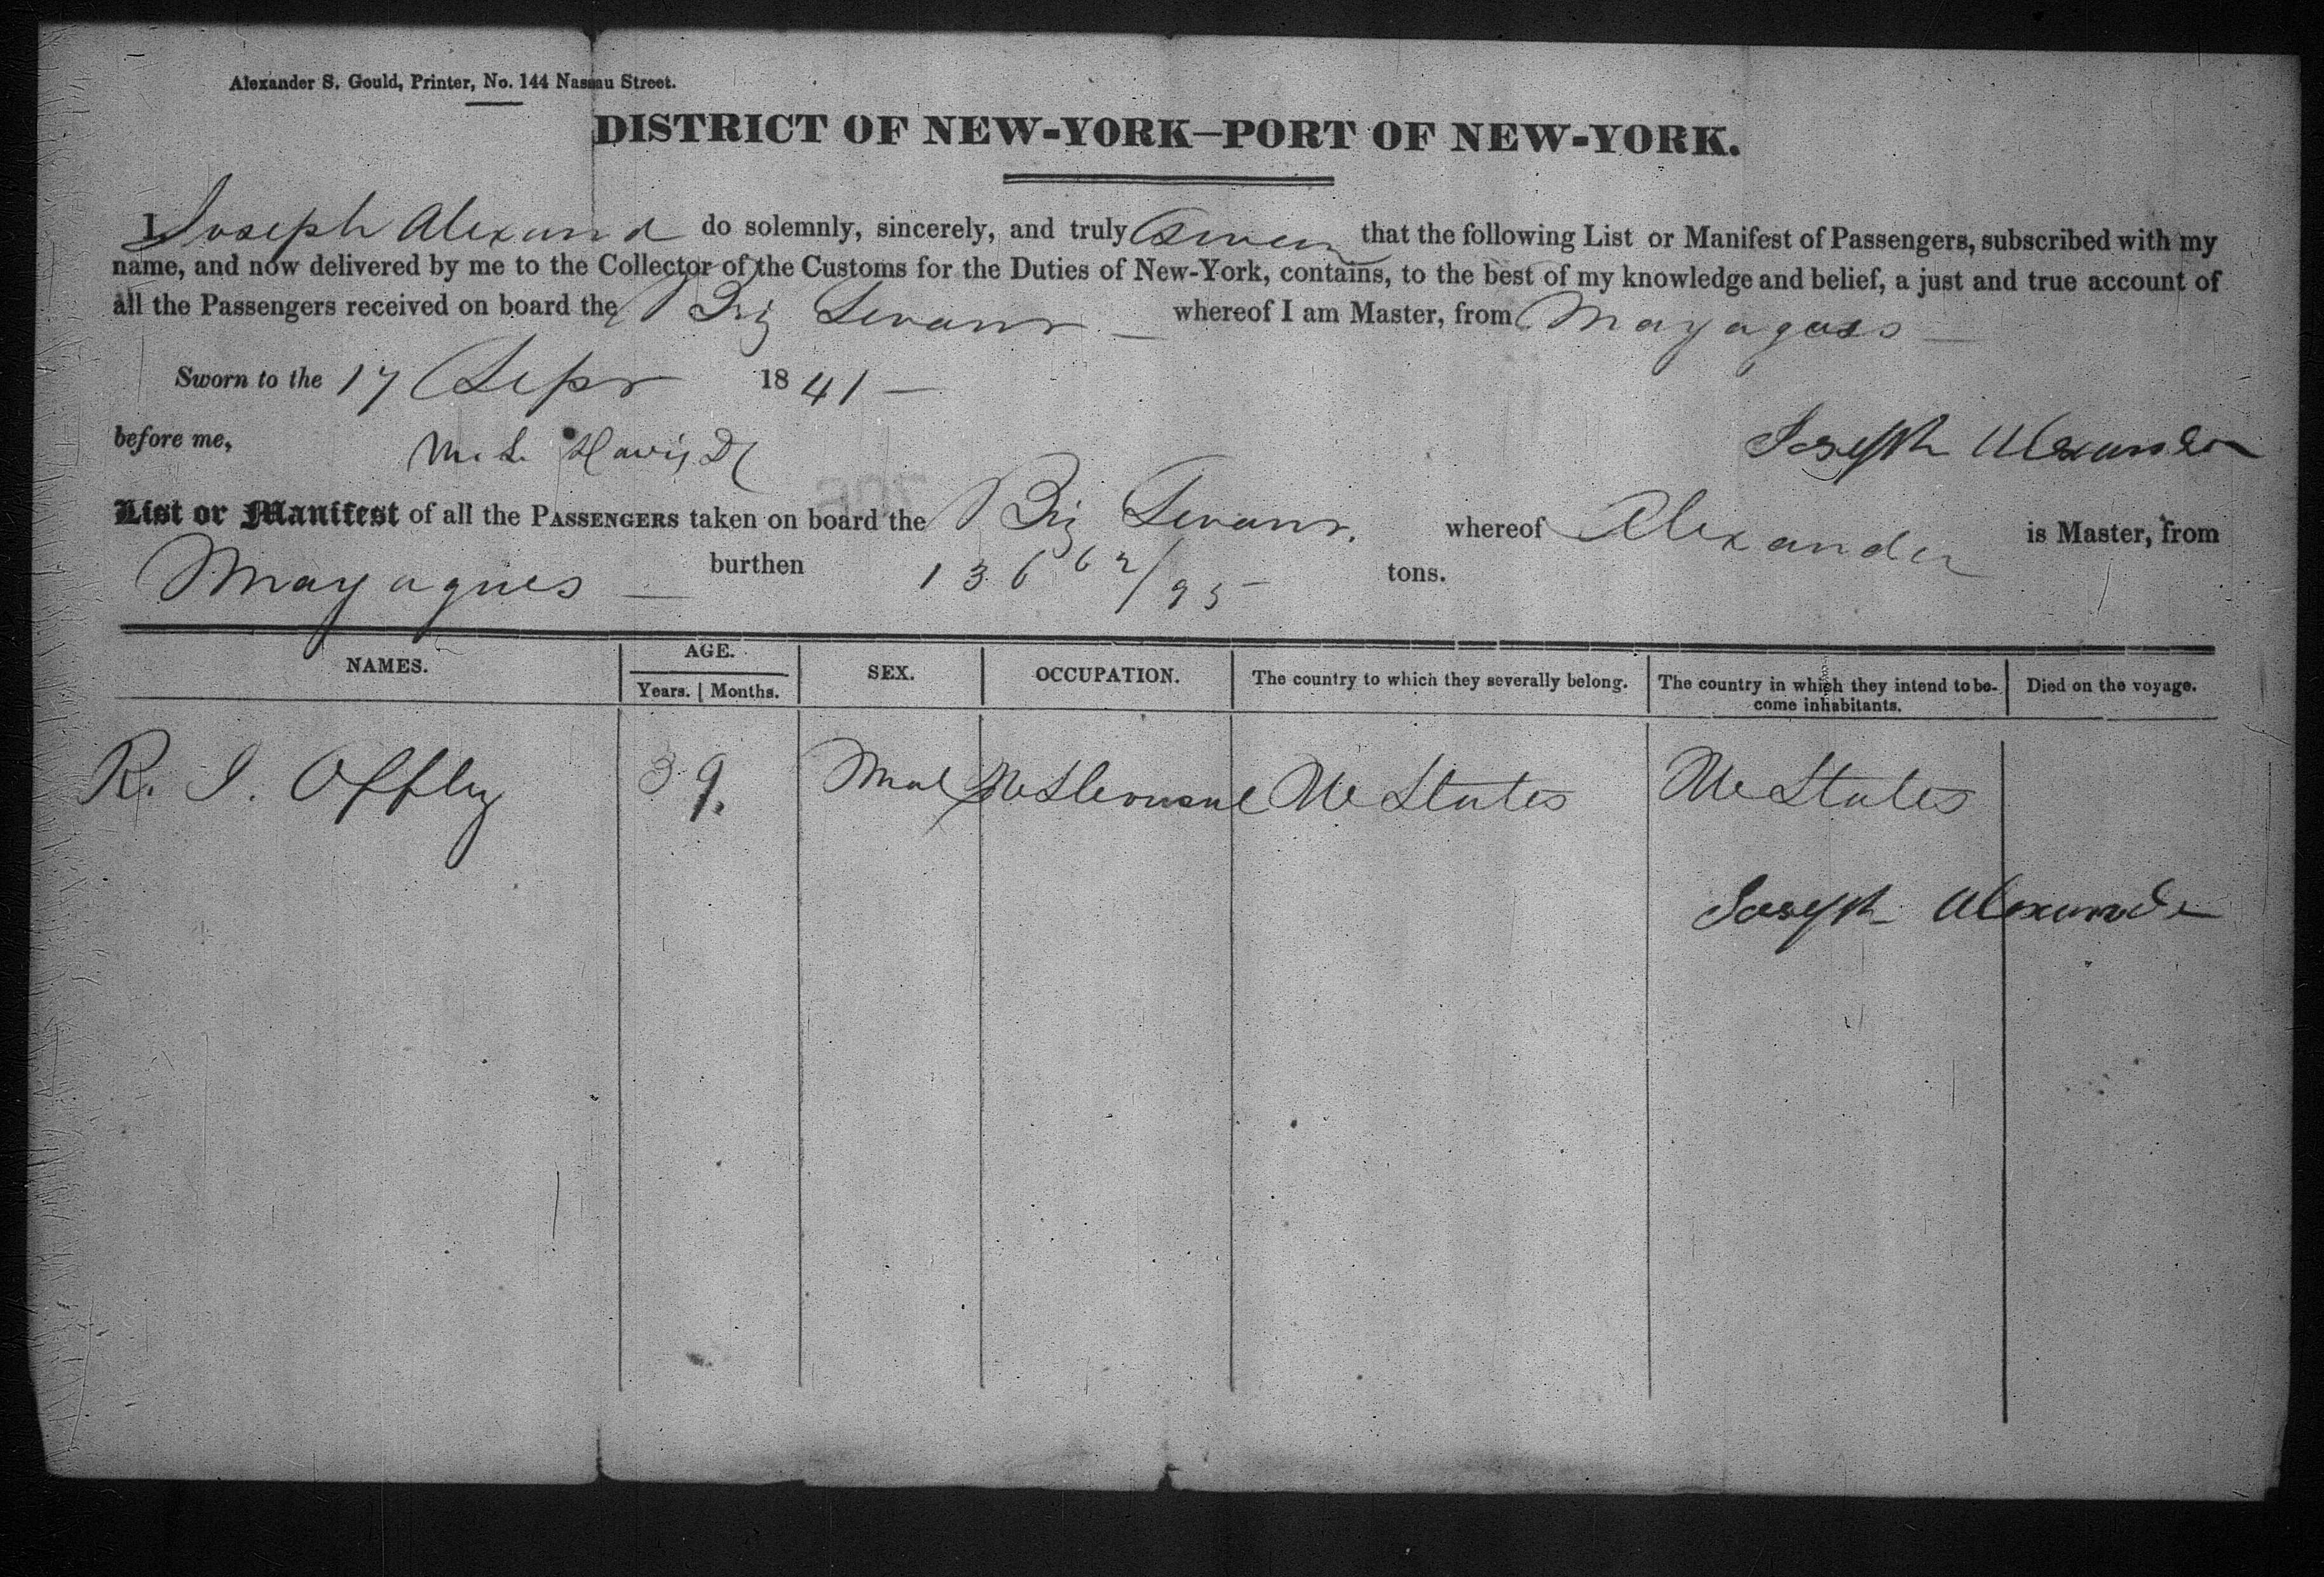 Alexander S. Gould, Printer, No. 144 Nassau Street.
DISTRICT OF NEW-YORK—PORT OF NEW-YORK.
I, Joseph Alexand do solemnly, sincerely, and truly Swear that the following List or Manifest of Passengers, subscribed with my
name, and now delivered by me to the Collector of the Customs for the Duties of New-York, contains, to the best of my knowledge and belief, a just and true account of
all the Passengers received on board the Brig whereof I am Master, from Mayaguess
Sworn to the 17 Sepr 1841 —
before me, Joseph Alexander
List or Manifest of all the PASSENGERS taken on board the Brig whereof Alexander is Master, from
Mayagues — burthen 136 62/95 tons.
NAMES. AGE. SEX. OCCUPATION. The country to which they severally belong. The country in which they intend to be- Died on the voyage.
Years. Months. come inhabitants.
R. J. Offley 39. Male U States U States
Joseph Alexander